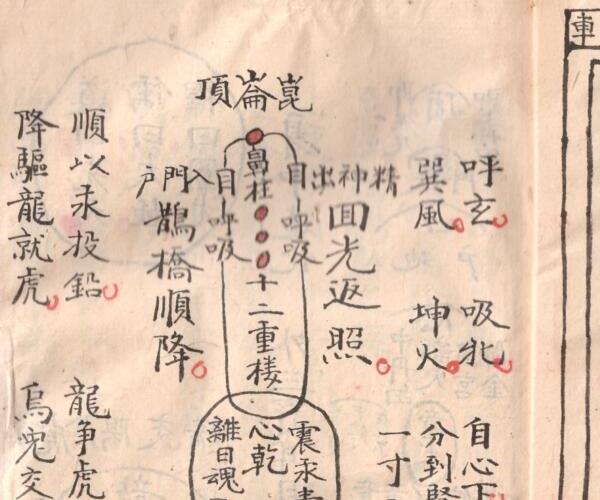 車
呼玄
巽風
吸牝
坤火
自心下
分到腎
一寸
崑崙頂
精神出
囬光返照
目呼吸
鼻柱
十二重楼
目呼吸
入門戶
鵲橋順降
順以汞投鉛
降驅龍就虎
震汞
心乾
離日魂
龍争虎
烏兎交